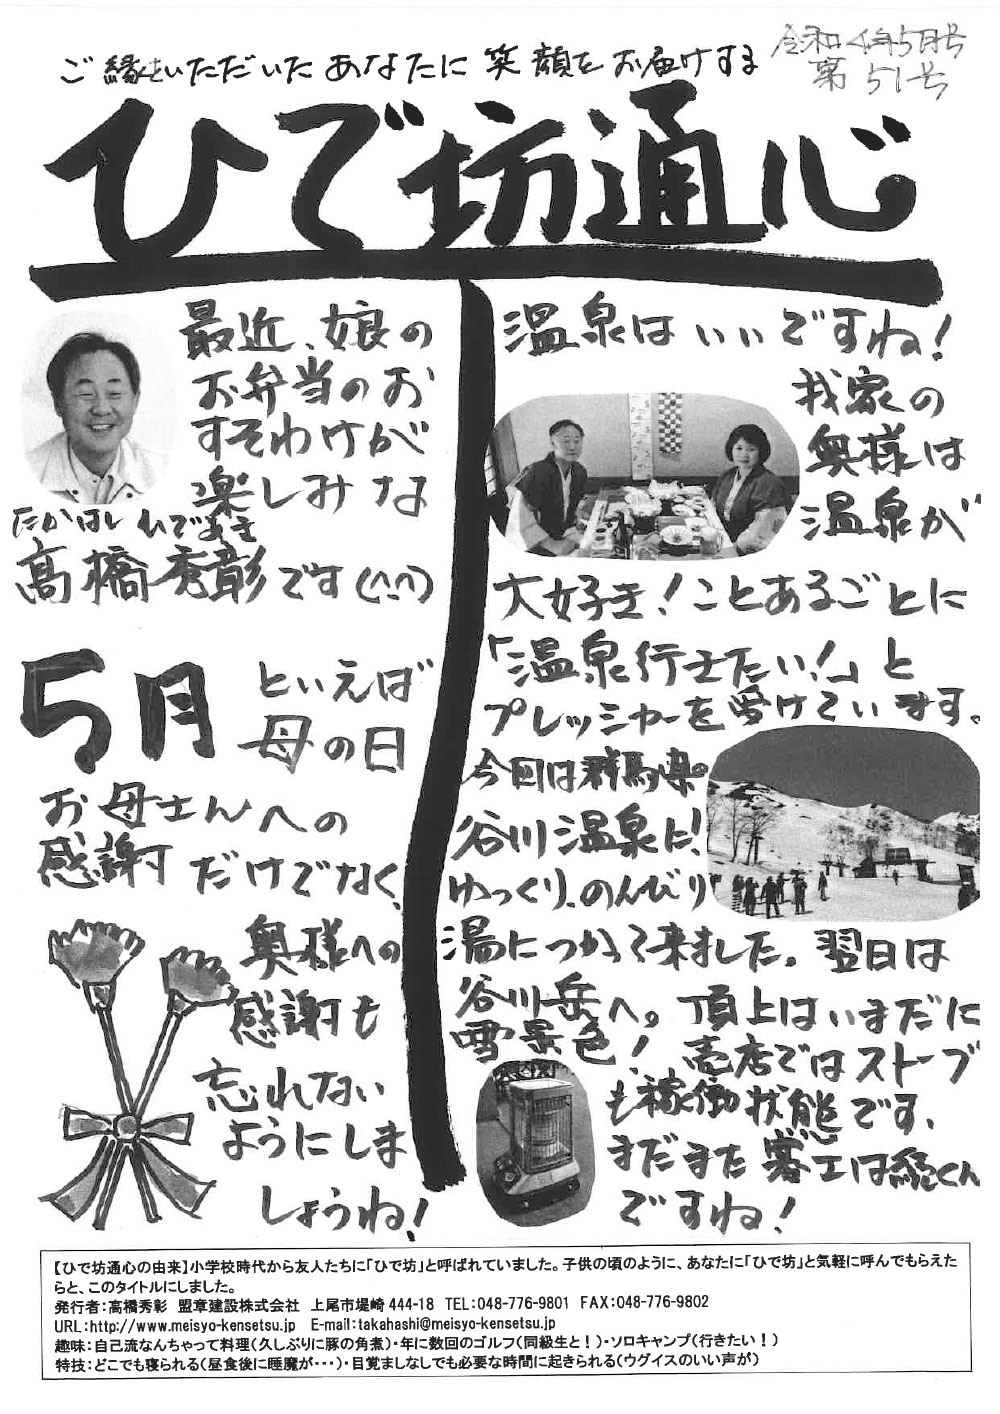 ご縁をいただいたあなたに笑顔をお届けする
令和4年5月号
第51号
ひで坊通心
最近、娘の
お弁当のお
すそわけが
楽しみな
たかはし ひであき
髙橋秀彰です(^^)
5月
といえば
母の日
お母さんへの
感謝だけでなく、
奥様への
感謝も
忘れない
ようにしま
しょうね!
温泉はいいですね!
我家の
奥様は
温泉が
大好き!ことあるごとに
「温泉行きたい!」と
プレッシャーを受けています。
今回は群馬県の
谷川温泉に!
ゆっくり、のんびり
湯につかって来ました。翌日は
谷川岳へ。頂上はいまだに
雪景色!売店ではストーブ
も稼働状態です、
まだまだ寒工は続くん
ですね!
【ひで坊通心の由来】小学校時代から友人たちに「ひで坊」と呼ばれていました。子供の頃のように、あなたに「ひで坊」と気軽に呼んでもらえた
らと、このタイトルにしました。
発行者:髙橋秀彰 盟章建設株式会社 上尾市堤崎444-18 TEL:048-776-9801 FAX:048-776-9802
URL:http://www.meisyo-kensetsu.jp E-mail:takahashi@meisyo-kensetsu.jp
趣味:自己流なんちゃって料理(久しぶりに豚の角煮)・年に数回のゴルフ(同級生と!)・ソロキャンプ(行きたい!)
特技:どこでも寝られる(昼食後に睡魔が・・・)・目覚ましなしでも必要な時間に起きられる(ウグイスのいい声が)